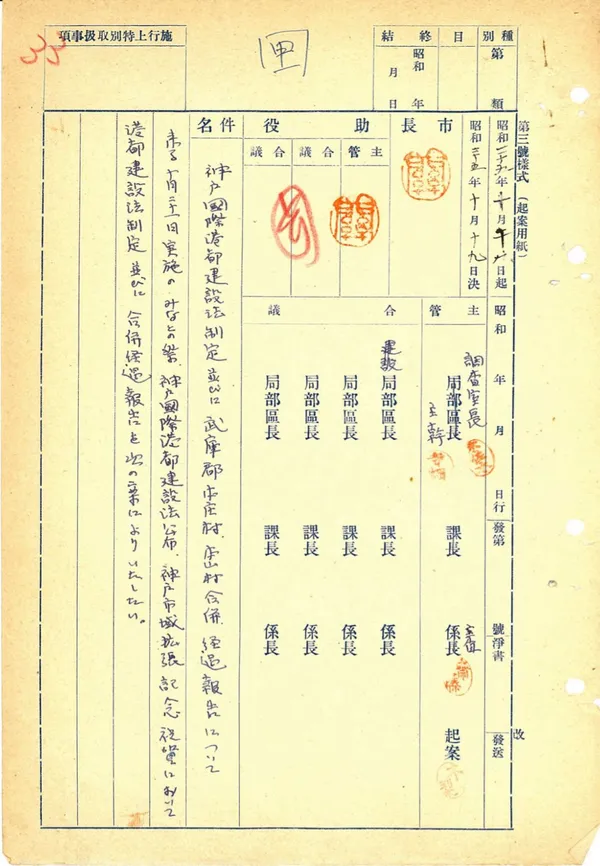 第三號樣式(起案用紙)
種別
第 類
目
終結
昭和 年 月 日
施行上特別取扱事項
33
昭和二十五年十月 日起
昭和二十五年十月十九日決
市長
助役
主管
合議
合議
件名
昭和 年 月 日行
發第 號
淨書
發送
改
主管
調査室長
局部區長
主幹
課長
係長
起案
合議
建設
局部區長
課長
係長
局部區長
課長
係長
局部區長
課長
係長
局部區長
課長
係長
神戸國際港都建設法制定並びに武庫郡本庄村、本山村合併経過報告について
来る十月二十一日実施のみなとの祭、神戸國際港都建設法公布、神戸市域拡張記念祝賀において
港都建設法制定並びに合併経過報告を次の案によりいたしたい。